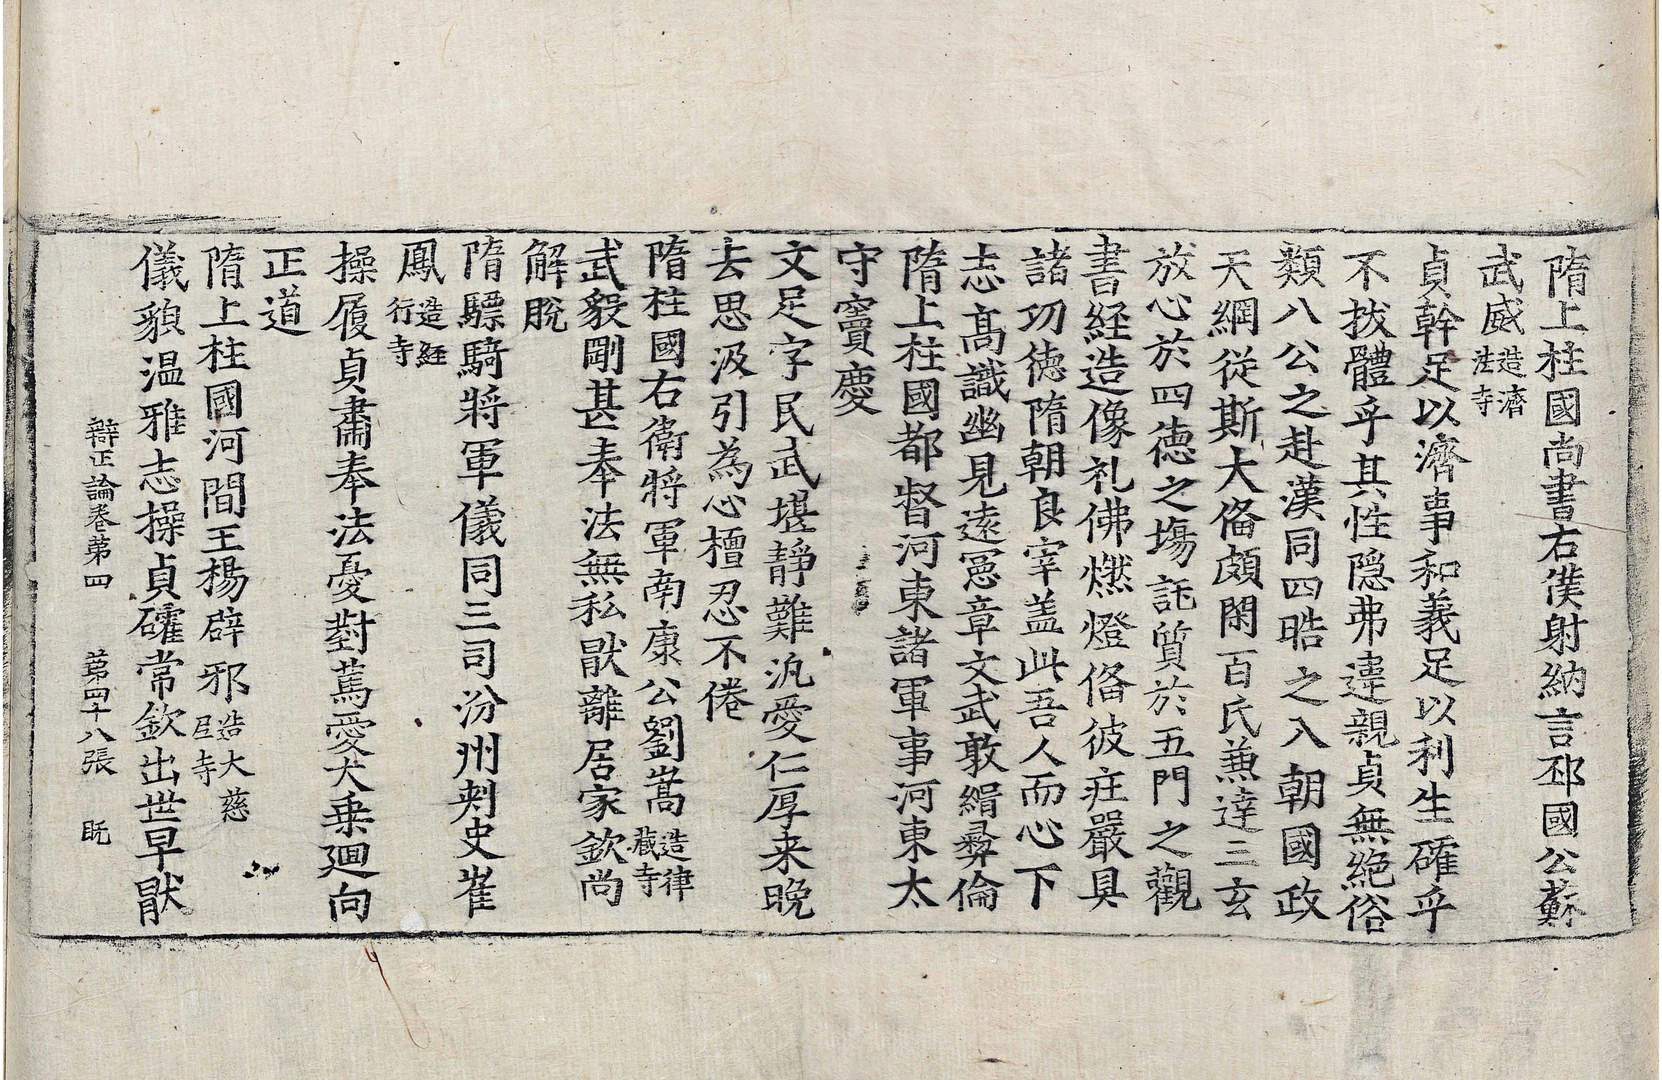 隋上柱國尚書右僕射納言邳國公蘇
武威造濟法寺
貞幹足以濟事和義足以利生確乎
不拔體乎其性隐弗違親貞無絶俗
類八公之赴漢同四晧之入朝國政
天綱從斯大俻頗閑百氏兼達三玄
放心於四德之塲託質於五門之觀
書經造像礼佛燃燈俻彼疘嚴具
諸功德隋朝良宰盖此吾人而心下
志髙識幽見遠憲章文武敢緝彛倫
隋上柱國都督河東諸軍事河東太
守竇慶
文足字民武堪靜難汎愛仁厚来晚
去思汲引為心檀忍不倦
隋柱國右衞將軍南康公劉嵩造律藏寺
武毅剛甚奉法無私猒離居家欽尚
解脫
隋驃騎將軍儀同三司汾州刾史崔
鳳造經行寺
操履貞肅奉法憂對蔫愛犬乗廻向
正道
隋上柱國河間王楊辟邪造大慈㞐寺
儀貌温雅志操貞礭常欽出世早猒
辯正論卷第四 第四十八張 旣